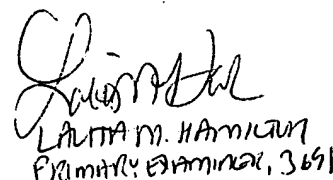 LALITA M. HAMILTON
PRIMARY EXAMINER, 3691